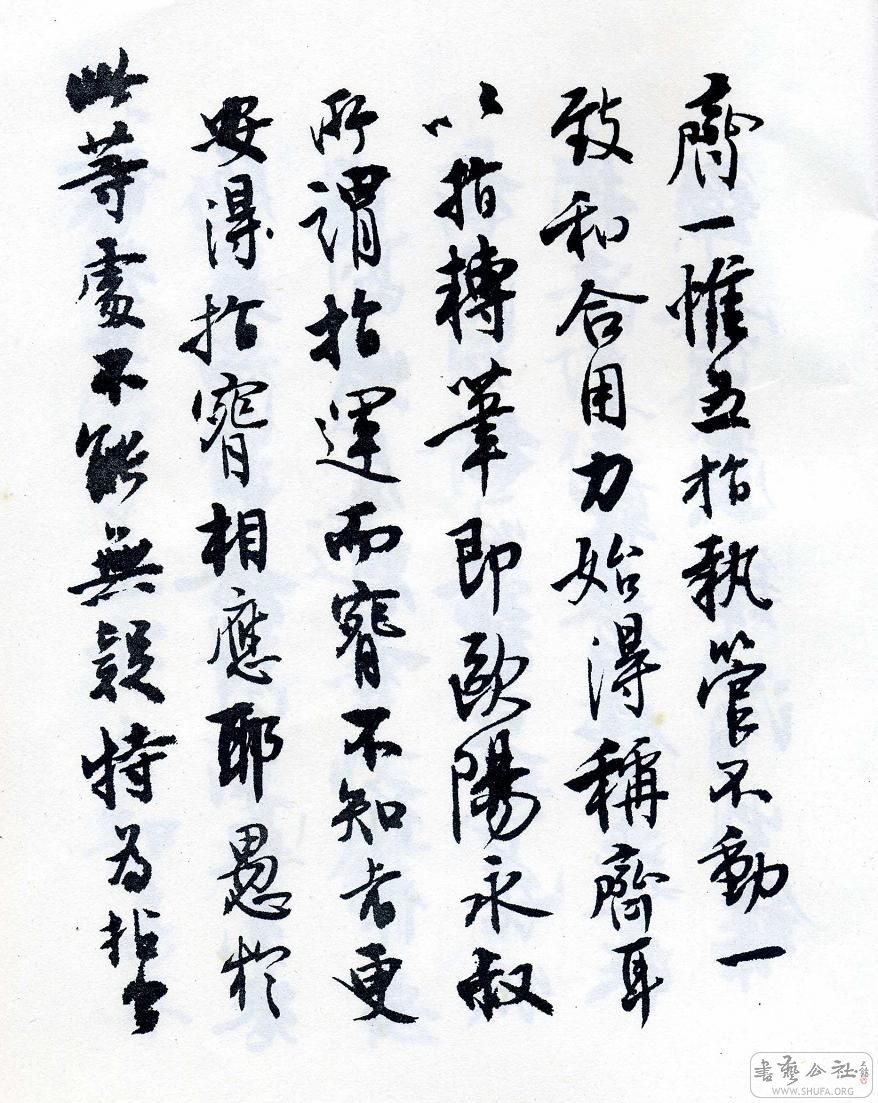 齊一惟五指執管不動一
致和合用力始得稱齊耳
以指轉筆即歐陽永叔
所謂指運而腕不知者更
安得指腕相應耶愚於
此等處不能無疑特為拈出
書藝公社
WWW.SHUFA.ORG